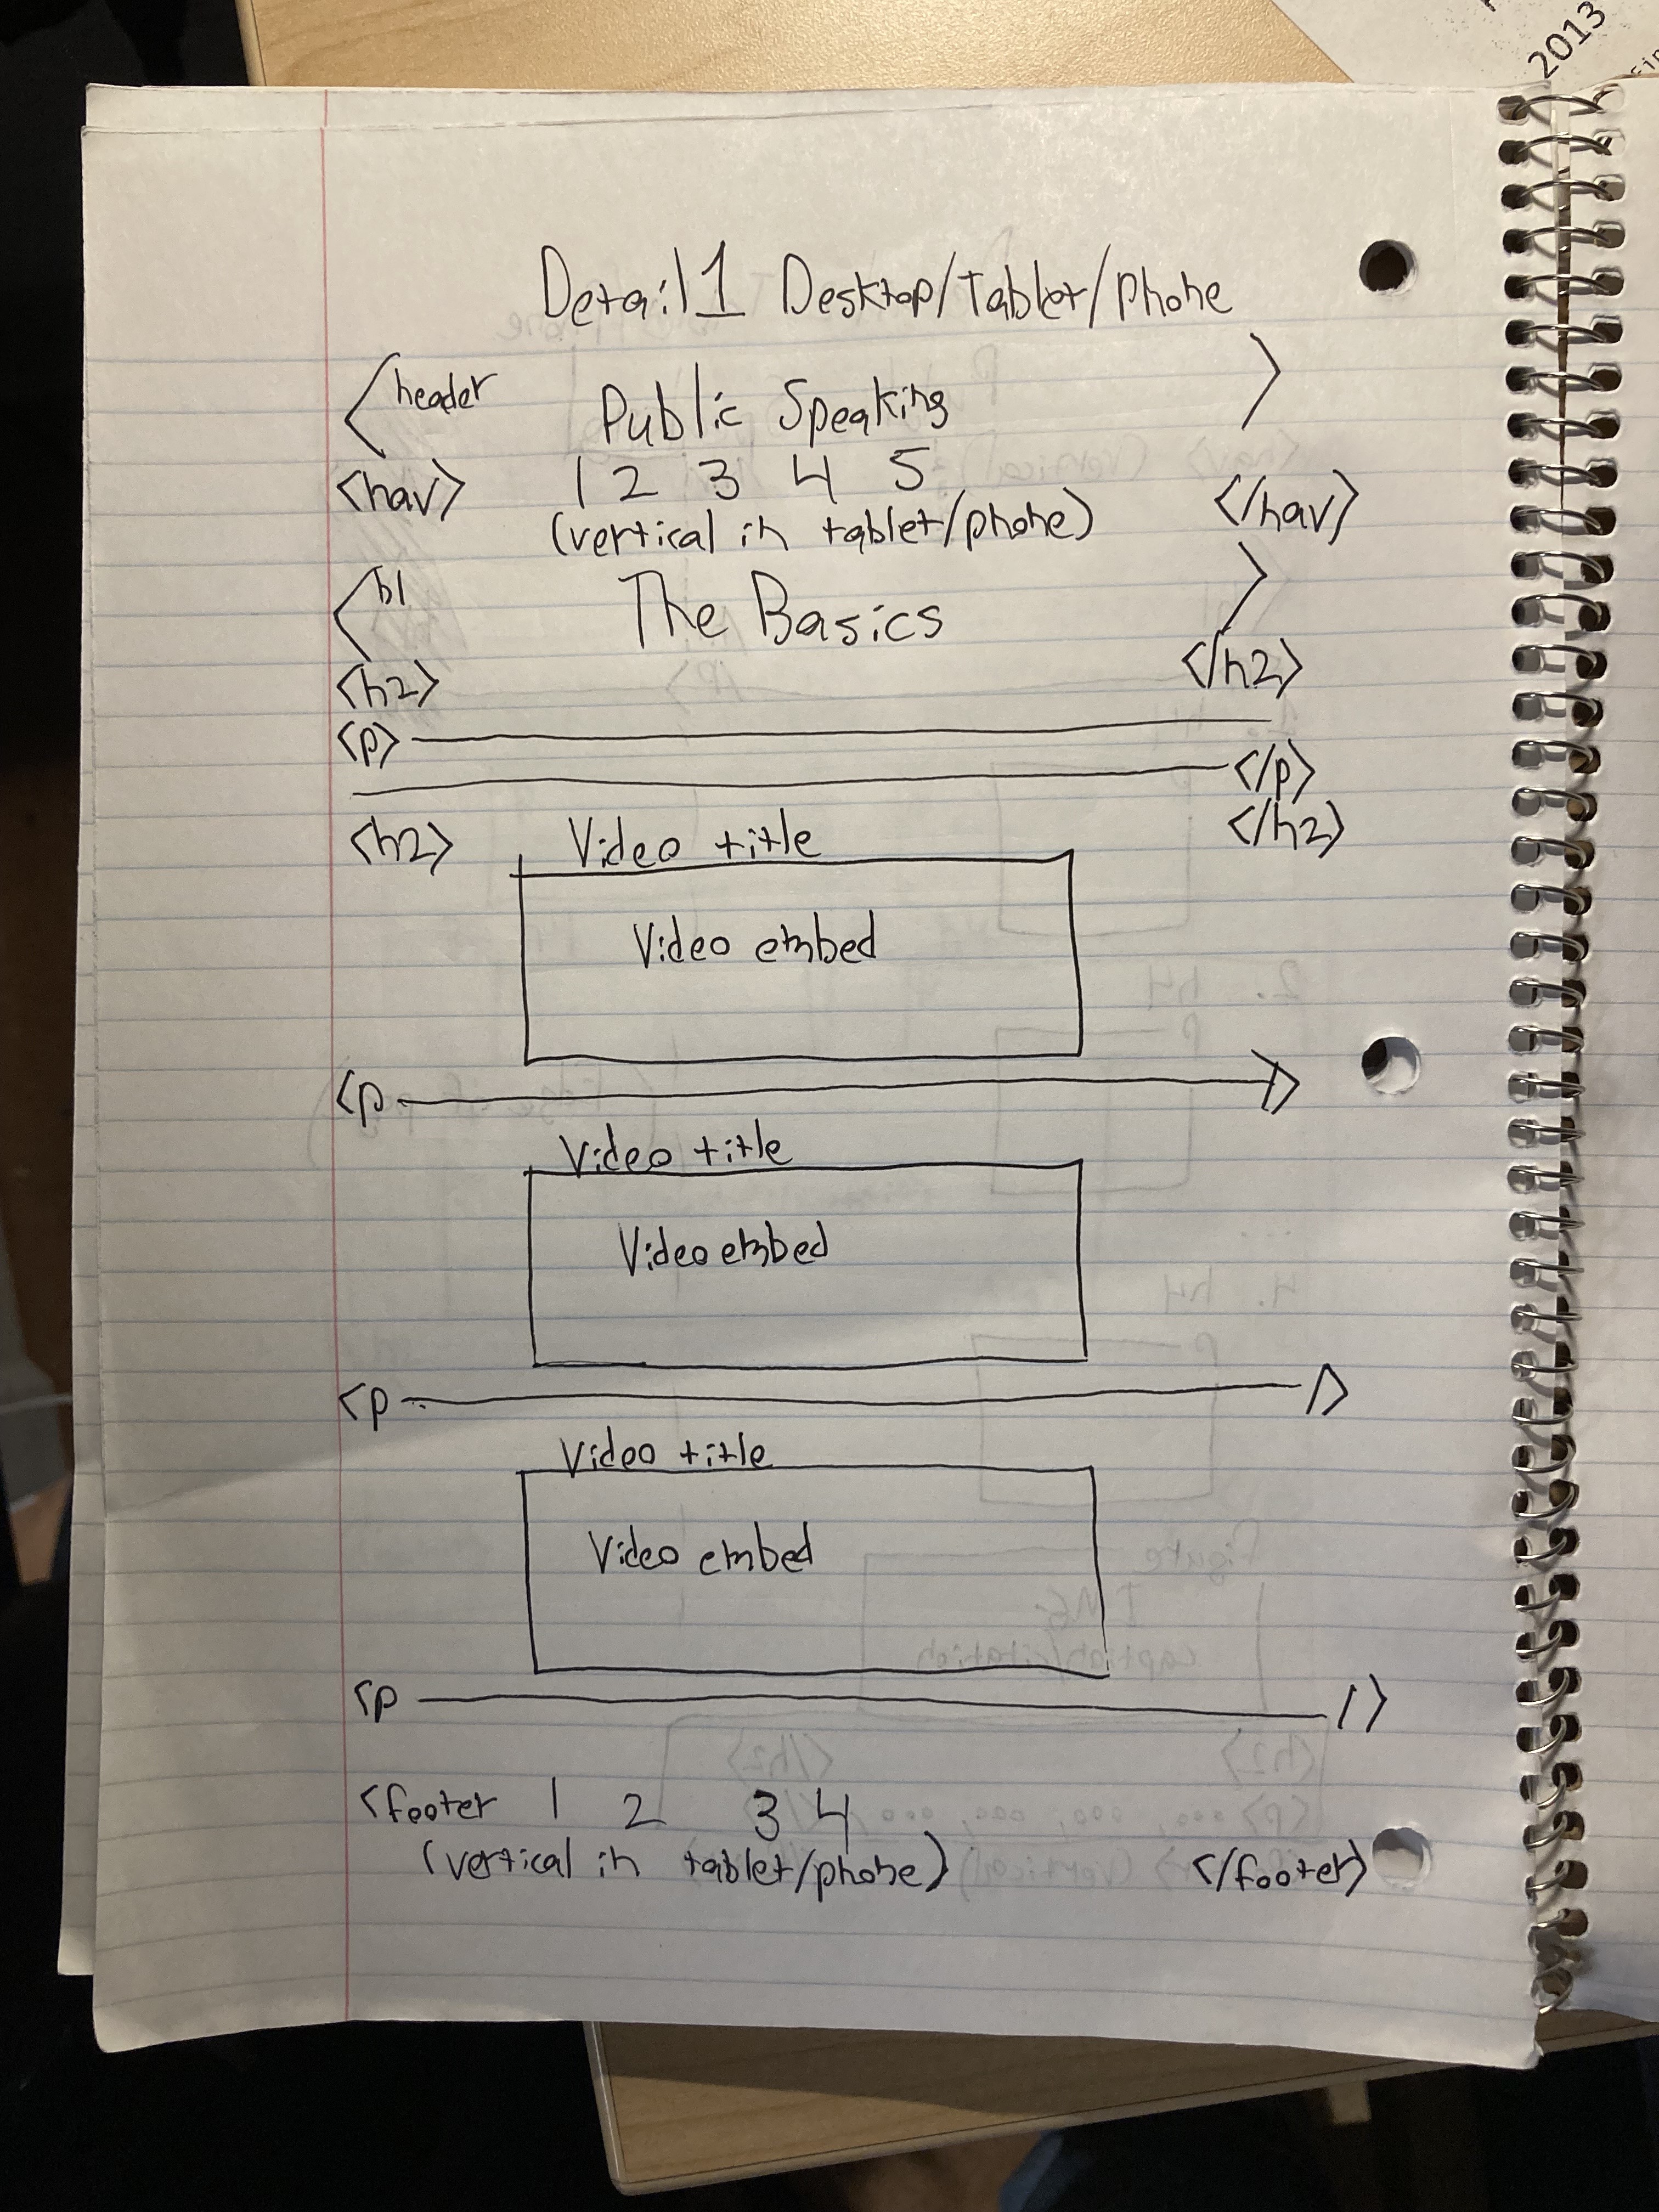 2013
Detail 1 Desktop/Tablet/Phone
<header Public Speaking >
<nav> 1 2 3 4 5 </nav>
(vertical in tablet/phone)
<h1 The Basics >
<h2> </h2>
<p>
</p>
<h2> Video title </h2>
Video embed
<p />
Video title
Video embed
<p />
Video title
Video embed
<p />
<footer 1 2 3 4
(vertical in tablet/phone) </footer>